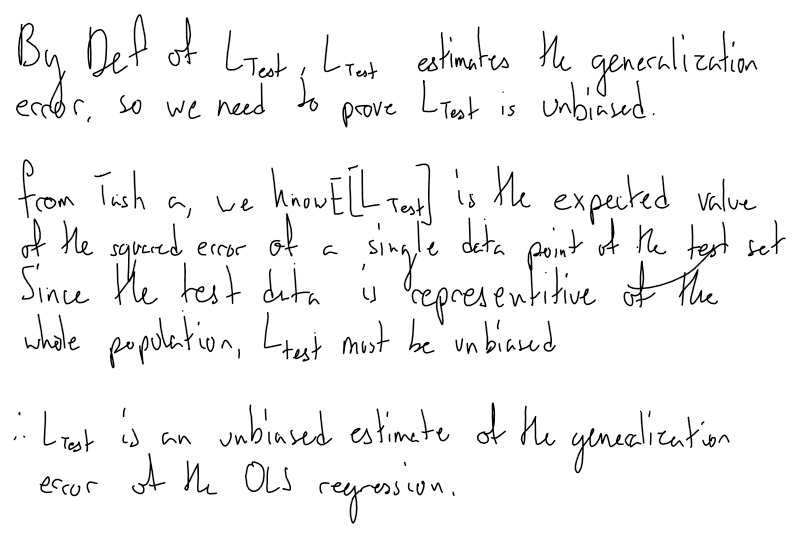 By Def of L_Test, L_Test estimates the generalization
error, so we need to prove L_Test is unbiased.
from Tash a, we know E[L_Test] is the expected value
of the squared error of a single data point of the test set
Since the test data is representitive of the
whole population, L_test must be unbiased
∴ L_Test is an unbiased estimate of the genealization
error of the OLS regression.